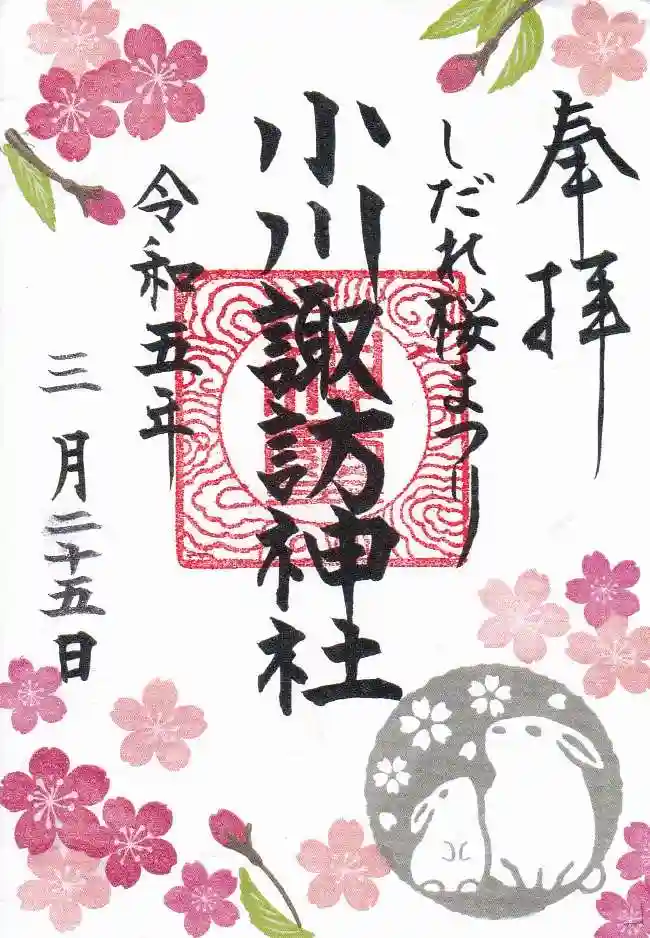 奉拝
しだれ桜まつり
小川諏訪神社
令和五年
三月二十五日